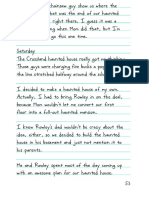 chainsaw guy show us where the
was the end of our haunted
right there. I guess it was a
ing when Mom did that, but I'm
go this one time.
Saturday
The Crossland haunted house really got me
These guys were charging five bucks a
the line stretched halfway around the
I decided to make a haunted house of my own.
Actually, I had to bring Rowley in on the deal,
because Mom wouldn't let me convert our
first floor into a full-out haunted mansion.
I knew Rowley's dad wouldn't be crazy about the
idea, either, so we decided to build the haunted
house in his basement and just not mention it to
his parents.
Me and Rowley spent most of the day coming up
with an awesome plan for our haunted house.